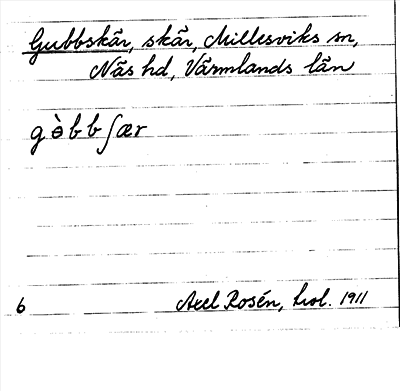 Gubbskär, skär, Millesviks sn,
Näs hd, Värmlands län
gɵ̀bbʃær
6 Axel Rosén, 1911